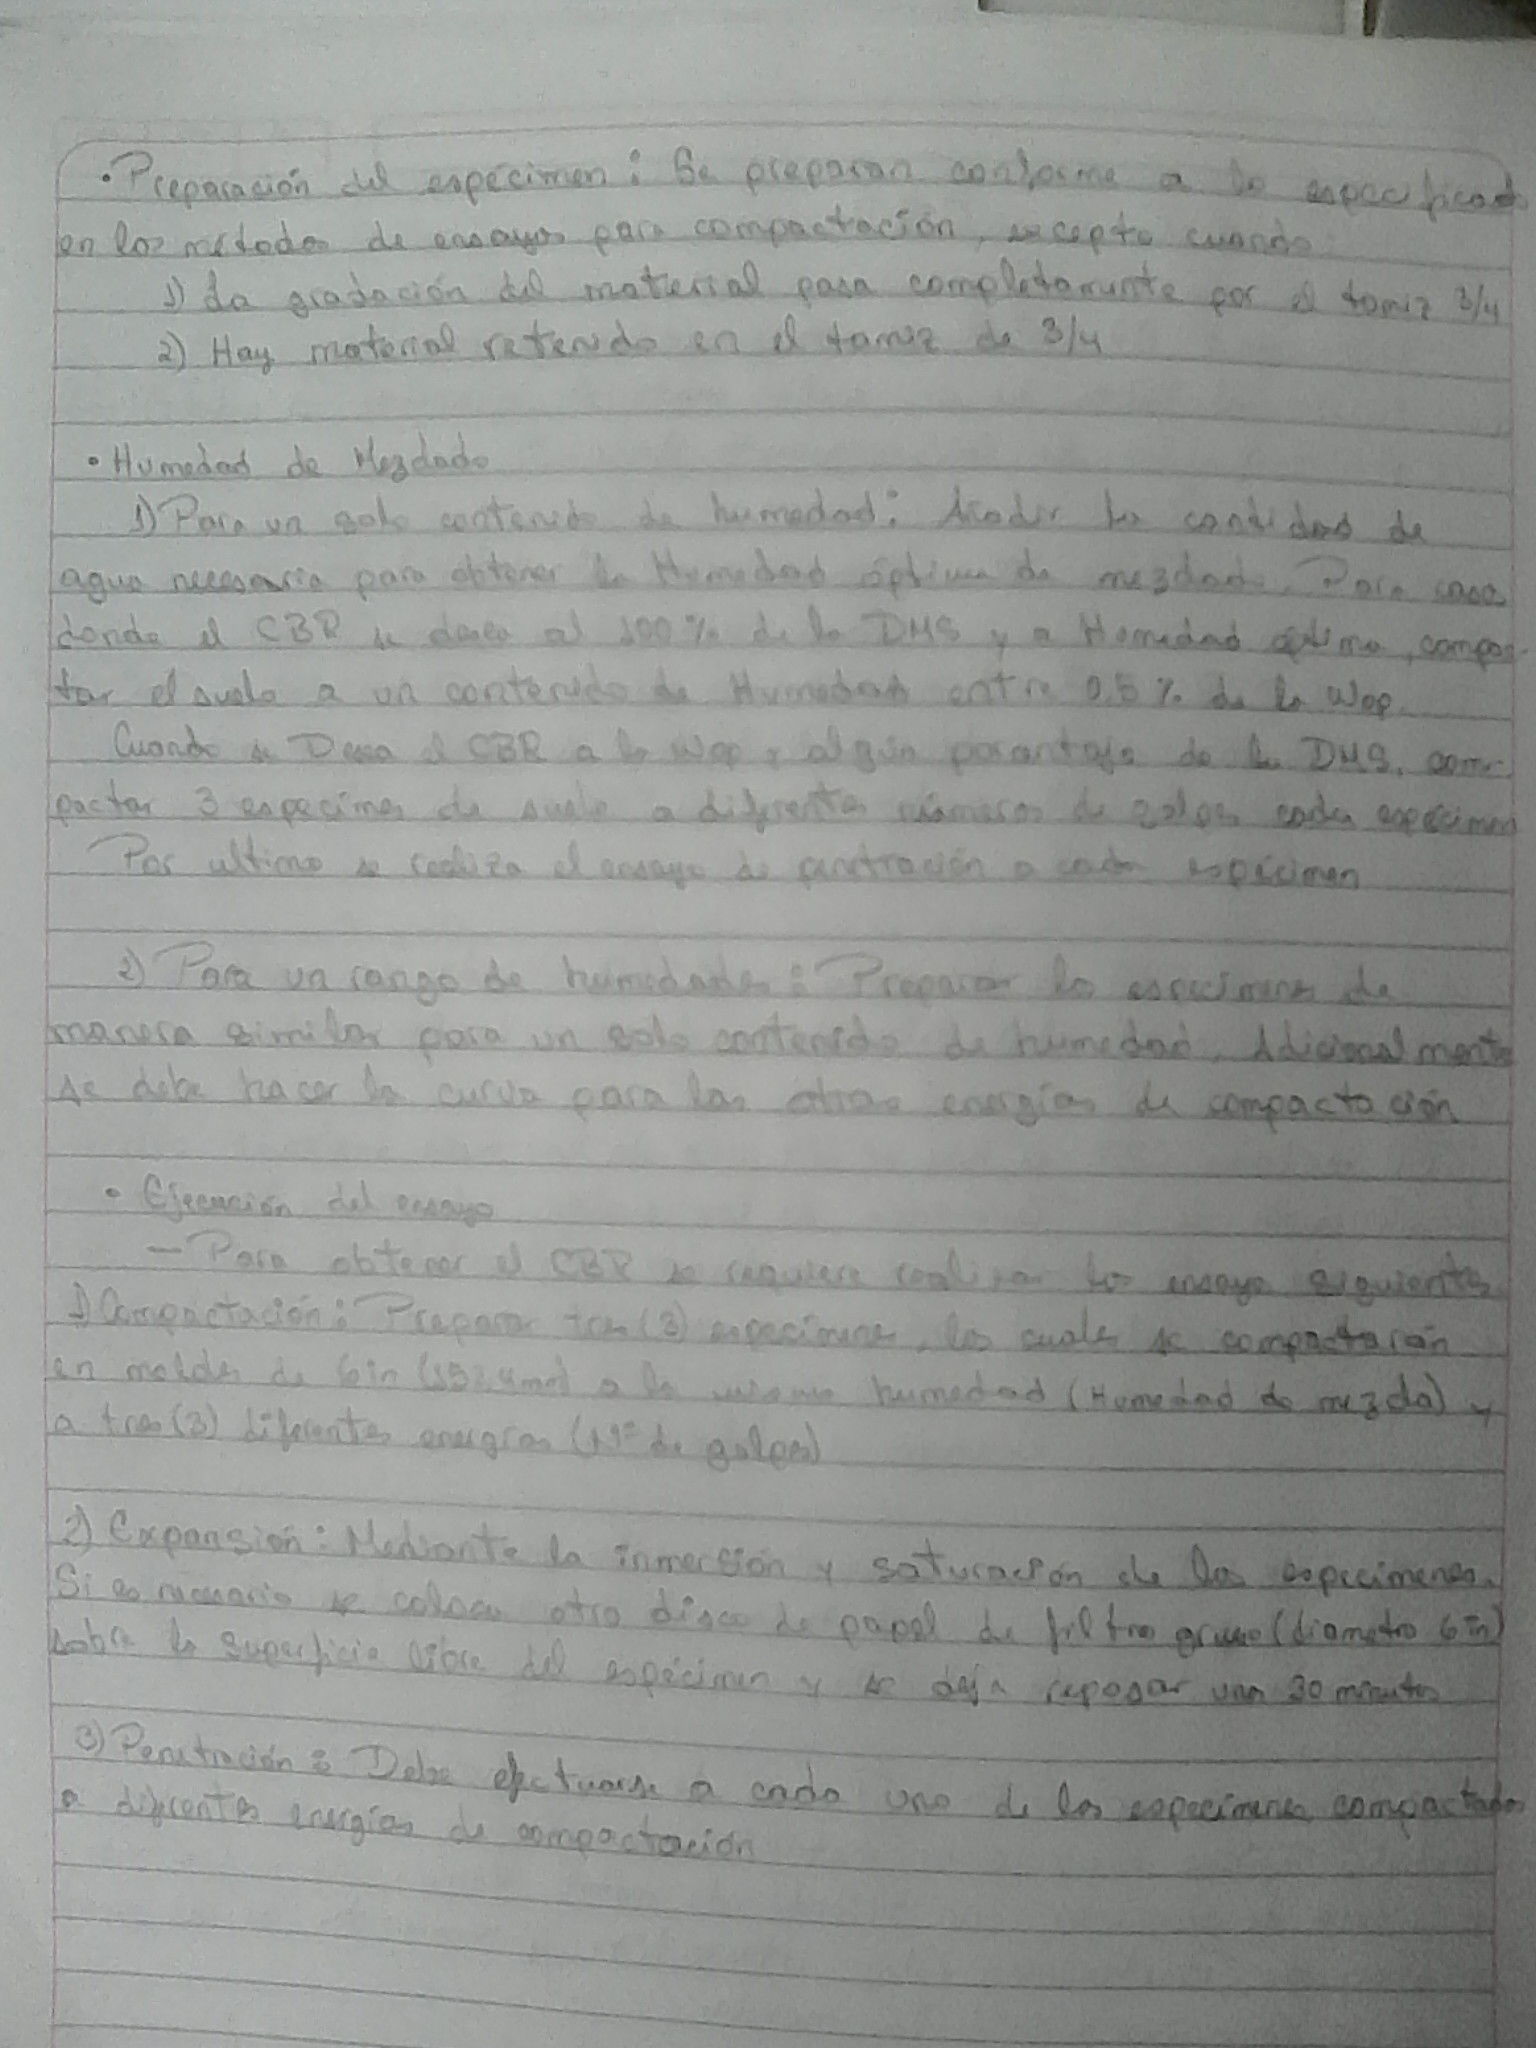 • Preparación del espécimen: Se preparan conforme a lo especificado
en los métodos de ensayos para compactación, excepto cuando:
1) La gradación del material pasa completamente por el tamiz 3/4
2) Hay material retenido en el tamiz de 3/4
• Humedad de Mezclado
1) Para un solo contenido de humedad: Añadir la cantidad de
agua necesaria para obtener la Humedad óptima de mezclado. Para casos
donde el CBR se desea al 100% de la DMS y a Humedad óptima, compac-
tar el suelo a un contenido de Humedad entre 0.5% de la Wop.
Cuando se Desea el CBR a la Wop y algún porcentaje de la DMS, com-
pactar 3 especimes de suelo a diferentes números de golpes cada espécimen
Por ultimo se realiza el ensayo de penetración a cada espécimen
2) Para un rango de humedades: Preparar los especimenes de
manera similar para un solo contenido de humedad. Adicionalmente
se debe hacer la curva para las otras energías de compactación
• Ejecución del ensayo
- Para obtener el CBR se requiere realizar los ensayos siguientes
1) Compactación: Preparar tres (3) especimenes, los cuales se compactarán
en moldes de 6in (152.4mm) a la misma humedad (Humedad de mezcla) y
a tres (3) diferentes energías (Nº de golpes)
2) Expansión: Mediante la inmersión y saturación de los especimenes.
Si es necesario se coloca otro disco de papel de filtro grueso (diametro 6 in)
sobre la superficie libre del espécimen y se deja reposar unos 30 minutos
3) Penetración: Debe efectuarse a cada uno de los especimenes compactados
a diferentes energías de compactación